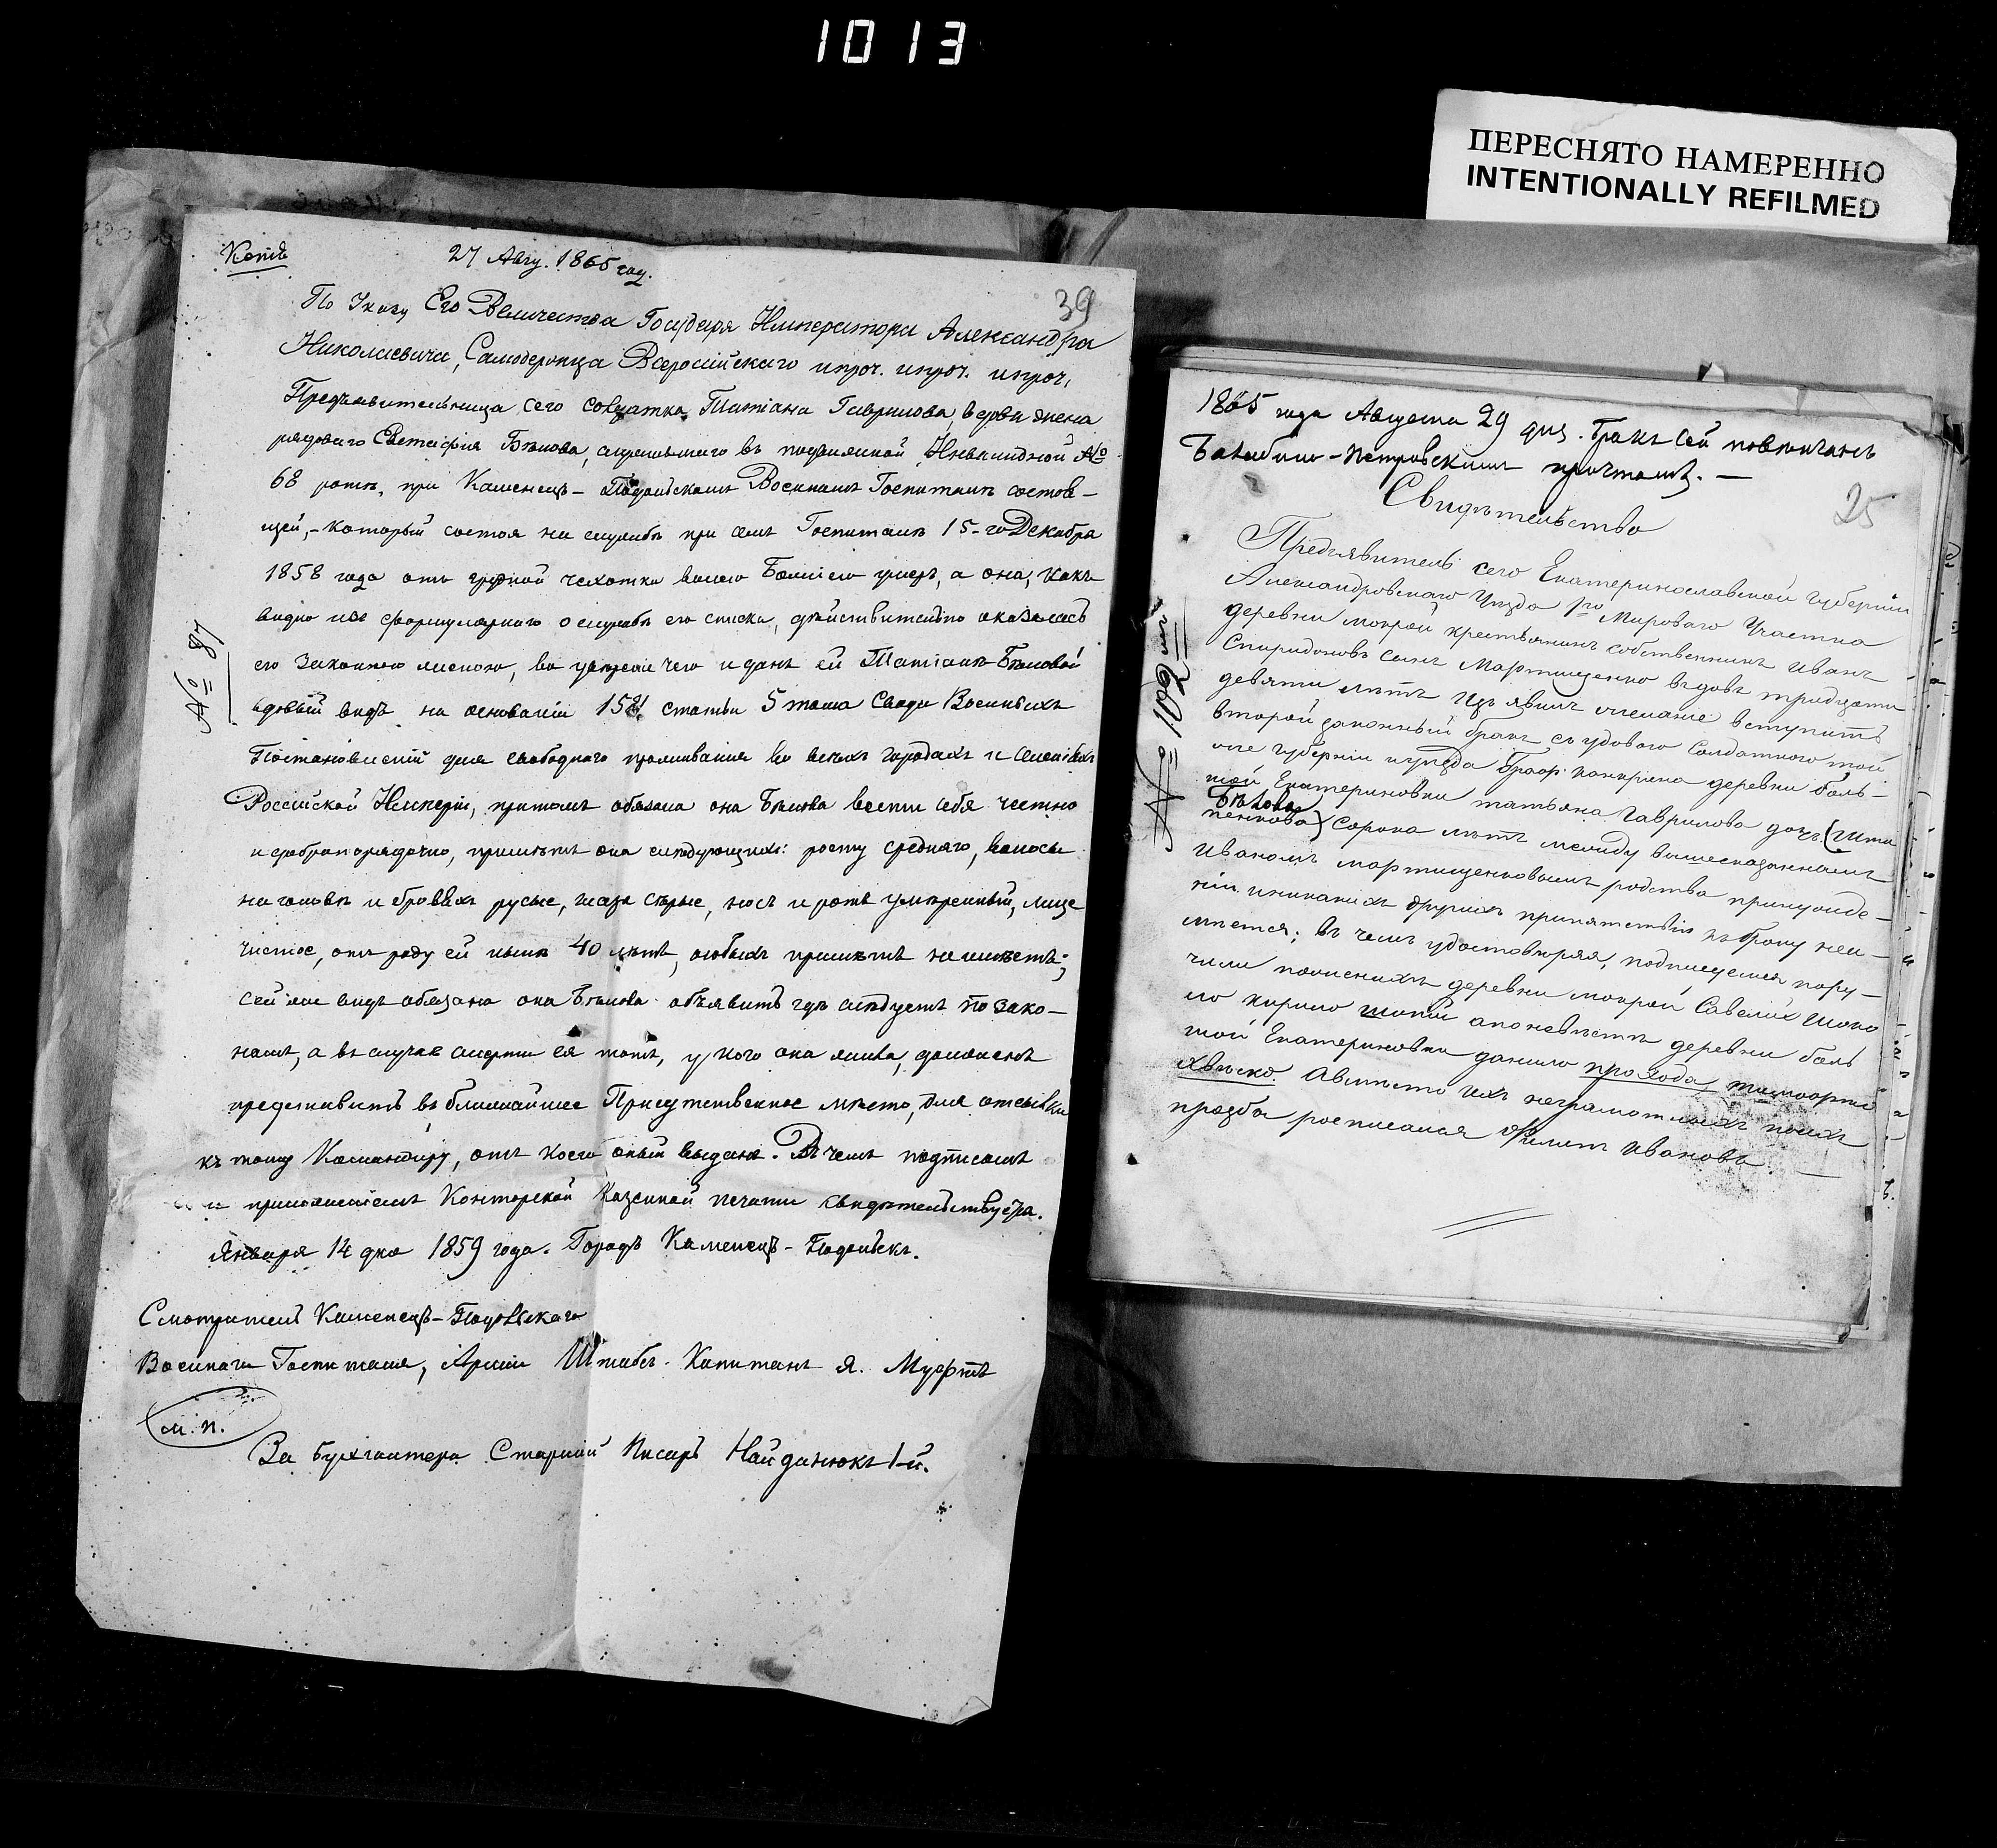 1013
ПЕРЕСНЯТО НАМЕРЕННО
INTENTIONALLY REFILMED
Копія
27 Авгу. 1865 год.
39
По Указу Его Величества Государя Императора Александра
Николаевича, Самодержца Всеросійскаго и проч. и проч. и проч.
Предъявительница сего солдатка Татіана Гаврилова, вдова жена
рядоваго Евстафія Бѣлова, служившаго въ подвижной Инвалидной №
68 ротѣ, при Каменецъ-Подольскомъ Военномъ Госпиталѣ состоя-
щей, - который состоя на службѣ при семъ Госпиталѣ 15-го Декабря
1858 года отъ грудной чахотки волею Божіею умеръ, а она, какъ
видно изъ формулярнаго о службѣ его списка, дѣйствительно оказалась
его законною женою, во увѣреніе чего и данъ ей Татіанѣ Бѣловой
вдовый видъ на основаніи 1581 статьи 5 тома Свода Военныхъ
Постановленій для свободнаго проживанія во всѣхъ городахъ и селеніяхъ
Россійской Имперіи, притомъ обязана она Бѣлова вести себя честно
и добропорядочно, примѣтъ она слѣдующихъ: росту средняго, волосы
на головѣ и бровяхъ русые, глаза сѣрые, носъ и ротъ умѣренный, лице
чистое, отъ роду ей нынѣ 40 лѣтъ, особыхъ примѣтъ не имѣетъ;
сей же видъ обязана она Бѣлова объявить гдѣ слѣдуетъ по зако-
намъ, а въ случаѣ смерти ея тотъ, у кого она жила, долженъ
представить въ ближайшее Присутственное мѣсто, для отсылки
къ тому Командиру, отъ коего оный выданъ. Въ чемъ подписомъ
и приложеніемъ Конторской Казенной печати свидѣтельствуется.
Января 14 дня 1859 года. Городъ Каменецъ-Подольскъ.
Смотритель Каменецъ-Подольскаго
Военнаго Госпиталя, Арміи Штабсъ-Капитанъ Я.
М.П.
За бухгалтера Старшій Писарь Найданюкъ 1-й.
№ 87
1865 года Августа 29 дня. Бракъ сей повѣнчанъ
Балабино-Петровскимъ причтомъ. —
25
Свидѣтельство
Предъявитель сего Екатеринославской губерніи
Александровскаго Уѣзда 1го Мироваго Участка
деревни мокрой крестьянинъ собственникъ Иванъ
Спиридоновъ сынъ Мартищенко вдовъ тридцати
девяти лѣтъ изъявилъ желаніе вступить
второй законный бракъ съ удовою Солдаткою той
же губерніи и уѣзда Графа Канкрина деревни боль-
шой Екатериновки татьяна Гаврилова дочь (Шта
Бѣлова
пенкова) сорока лѣтъ между вышесказаннымъ
Иваномъ мартищенковымъ родства принужде-
нія и никакихъ другихъ припятствій къ браку неи-
мѣется; въ чемъ удостовѣряя, подписуемся пору-
чили деревни мокрой Савелій
кирило деревни боль
шой Екатериновки данило прохода,
Авмѣсто ихъ неграмотныхъ поихъ
прозбы росписался Филипъ Ивановъ. —
№ 1092 м